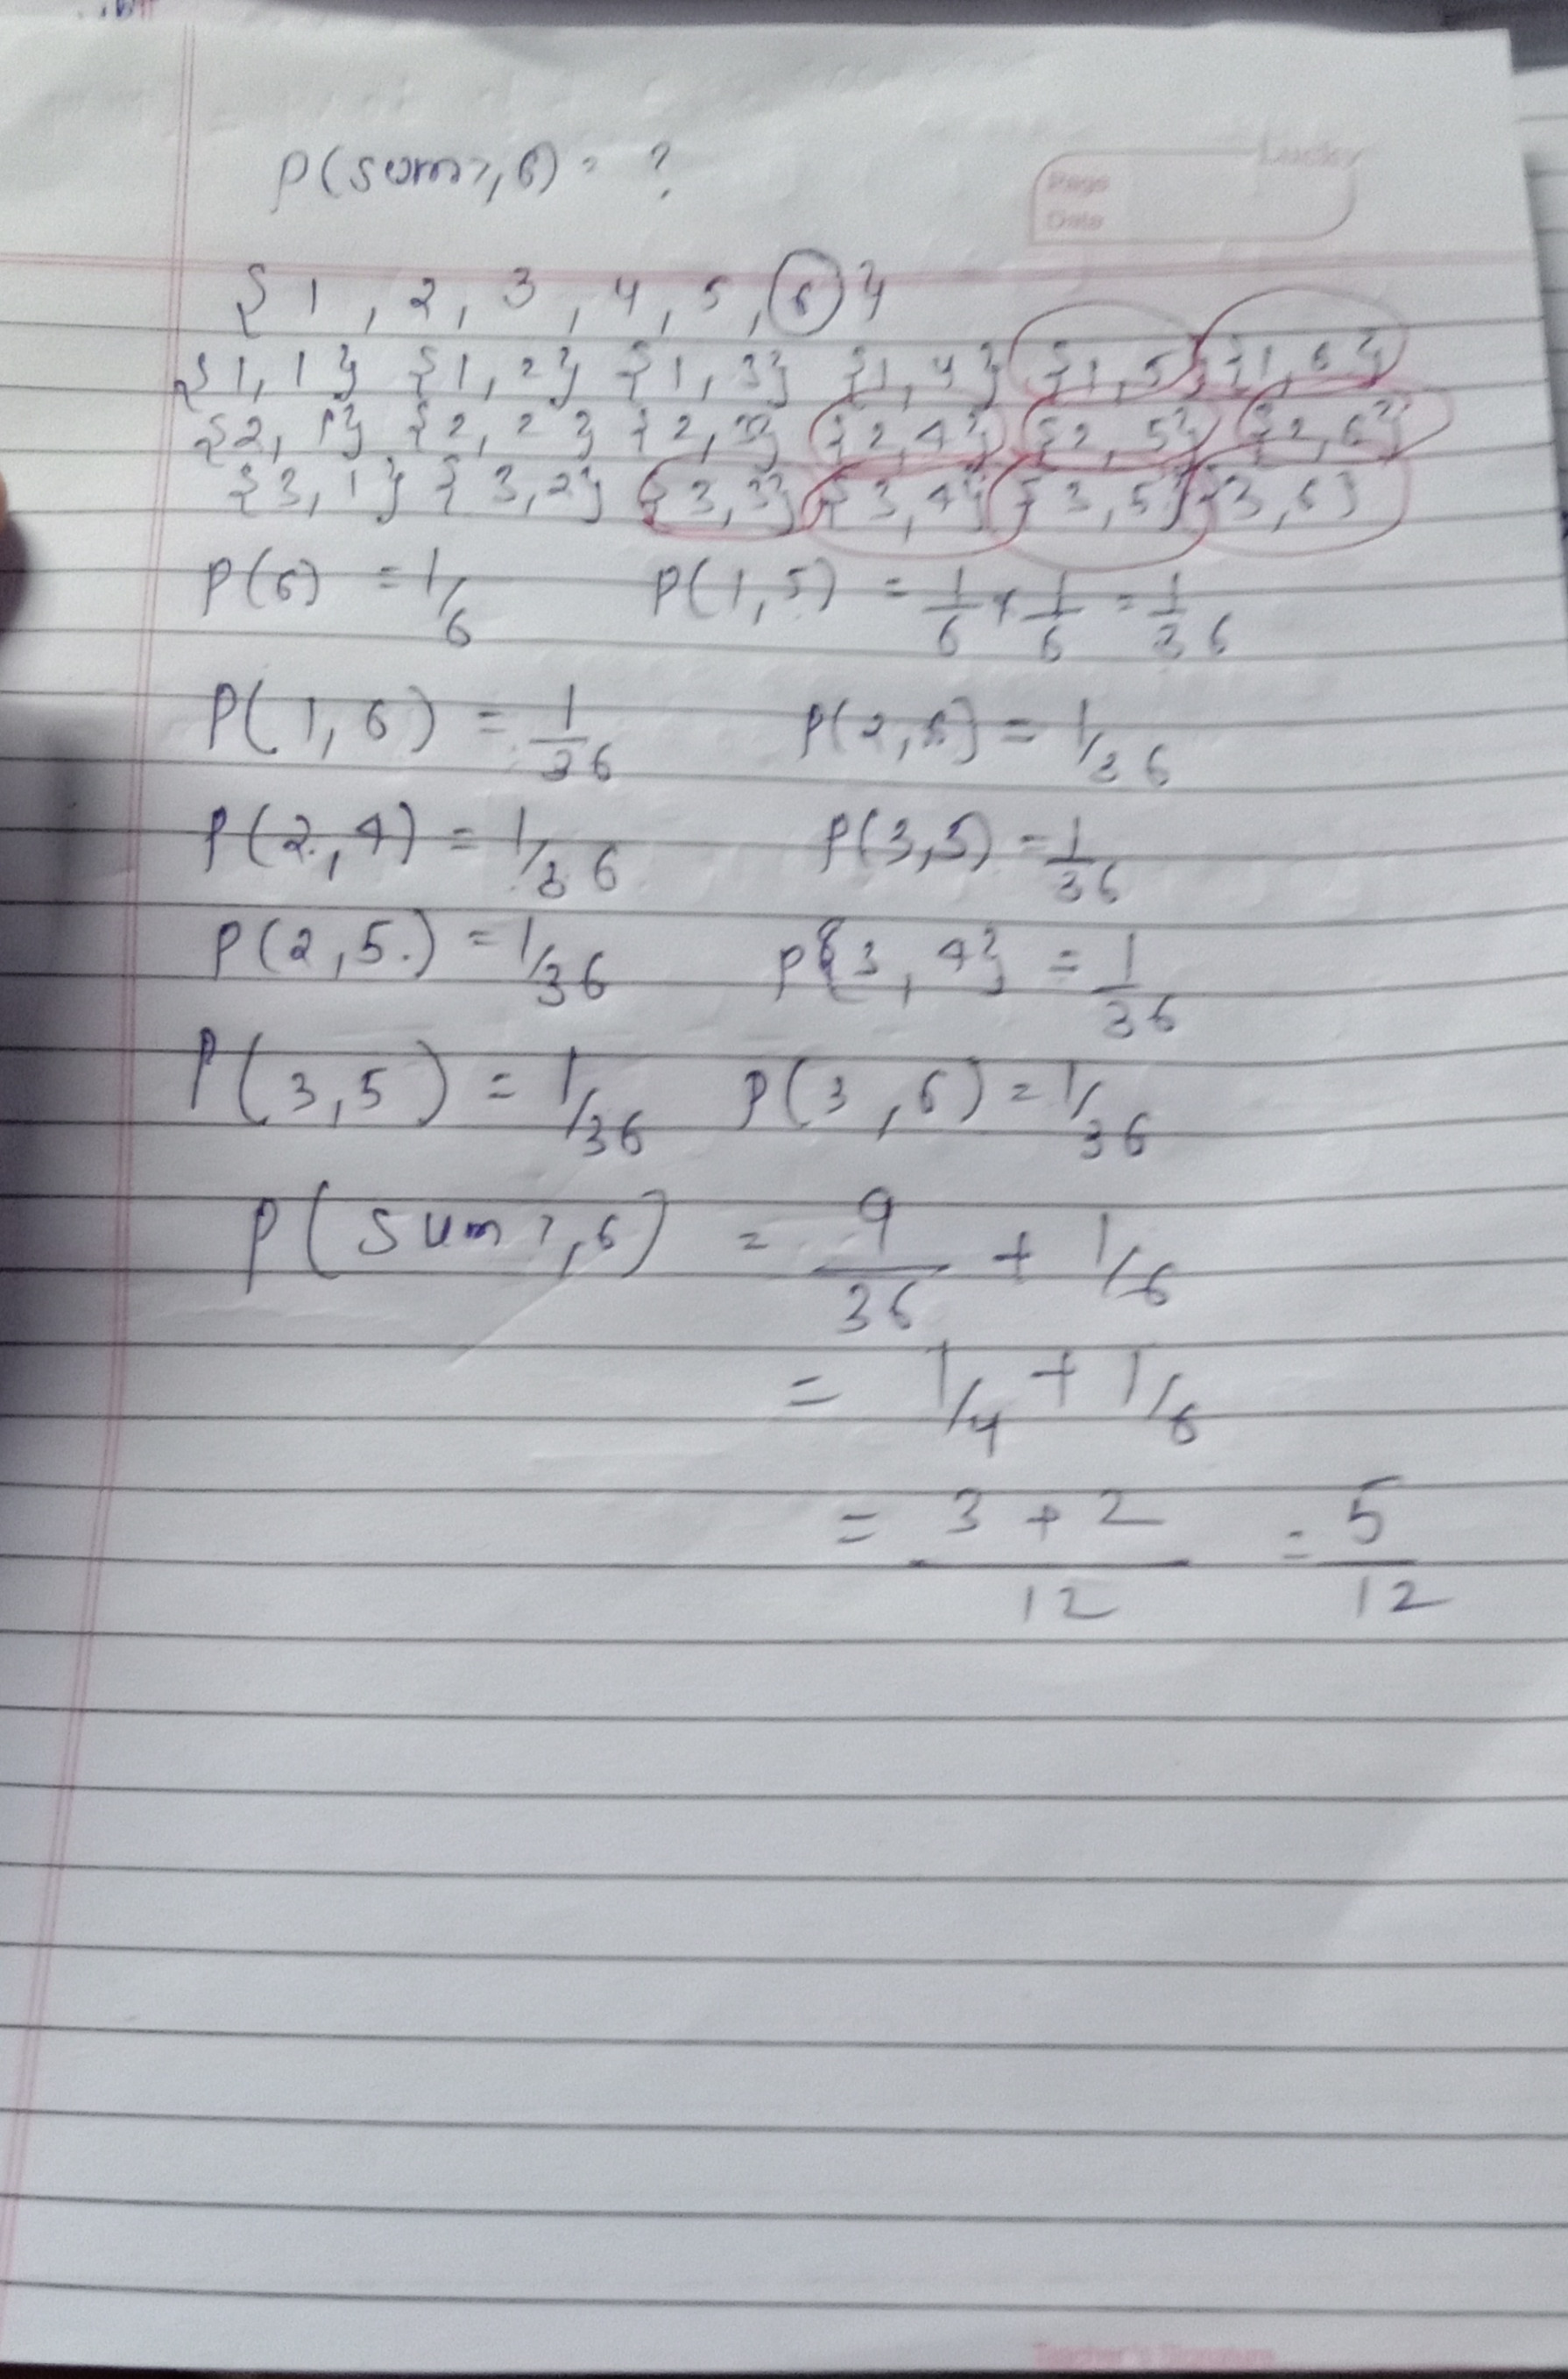 Lucky
Page
Date
P(sum ≥ 6) = ?
{ 1 , 2 , 3 , 4 , 5 , 6 }
{1,1} {1,2} {1,3} {1,4} {1,5} {1,6}
{2,1} {2,2} {2,3} {2,4} {2,5} {2,6}
{3,1} {3,2} {3,3} {3,4} {3,5} {3,6}
P(6) = 1/6 P(1,5) = 1/6 × 1/6 = 1/36
P(1,6) = 1/36 P(2,6) = 1/36
P(2,4) = 1/36 P(3,5) = 1/36
P(2,5.) = 1/36 P{3,4} = 1/36
P(3,5) = 1/36 P(3,6) = 1/36
P(sum ≥ 6) = 9/36 + 1/6
= 1/4 + 1/6
= 3+2/12 = 5/12
Teacher's Signature